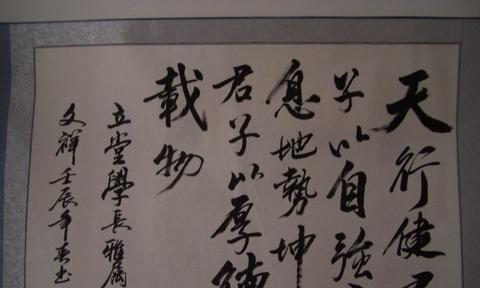 天行健
子以自強
息地勢坤
君子以厚德
載物
立堂學長雅属
文祥壬辰年春书